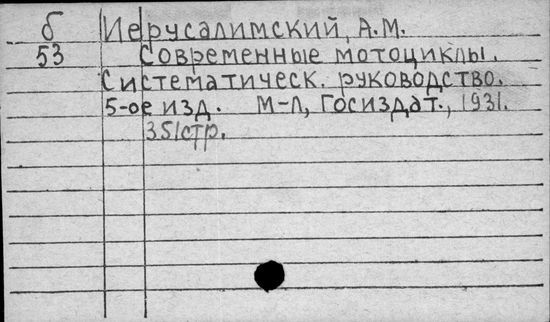 б Иерусалимский, А.М.
53 Современные мотоциклы.
Систематическ. руководство.
5-ое изд. М-Л, Госиздат., 1931.
351стр.